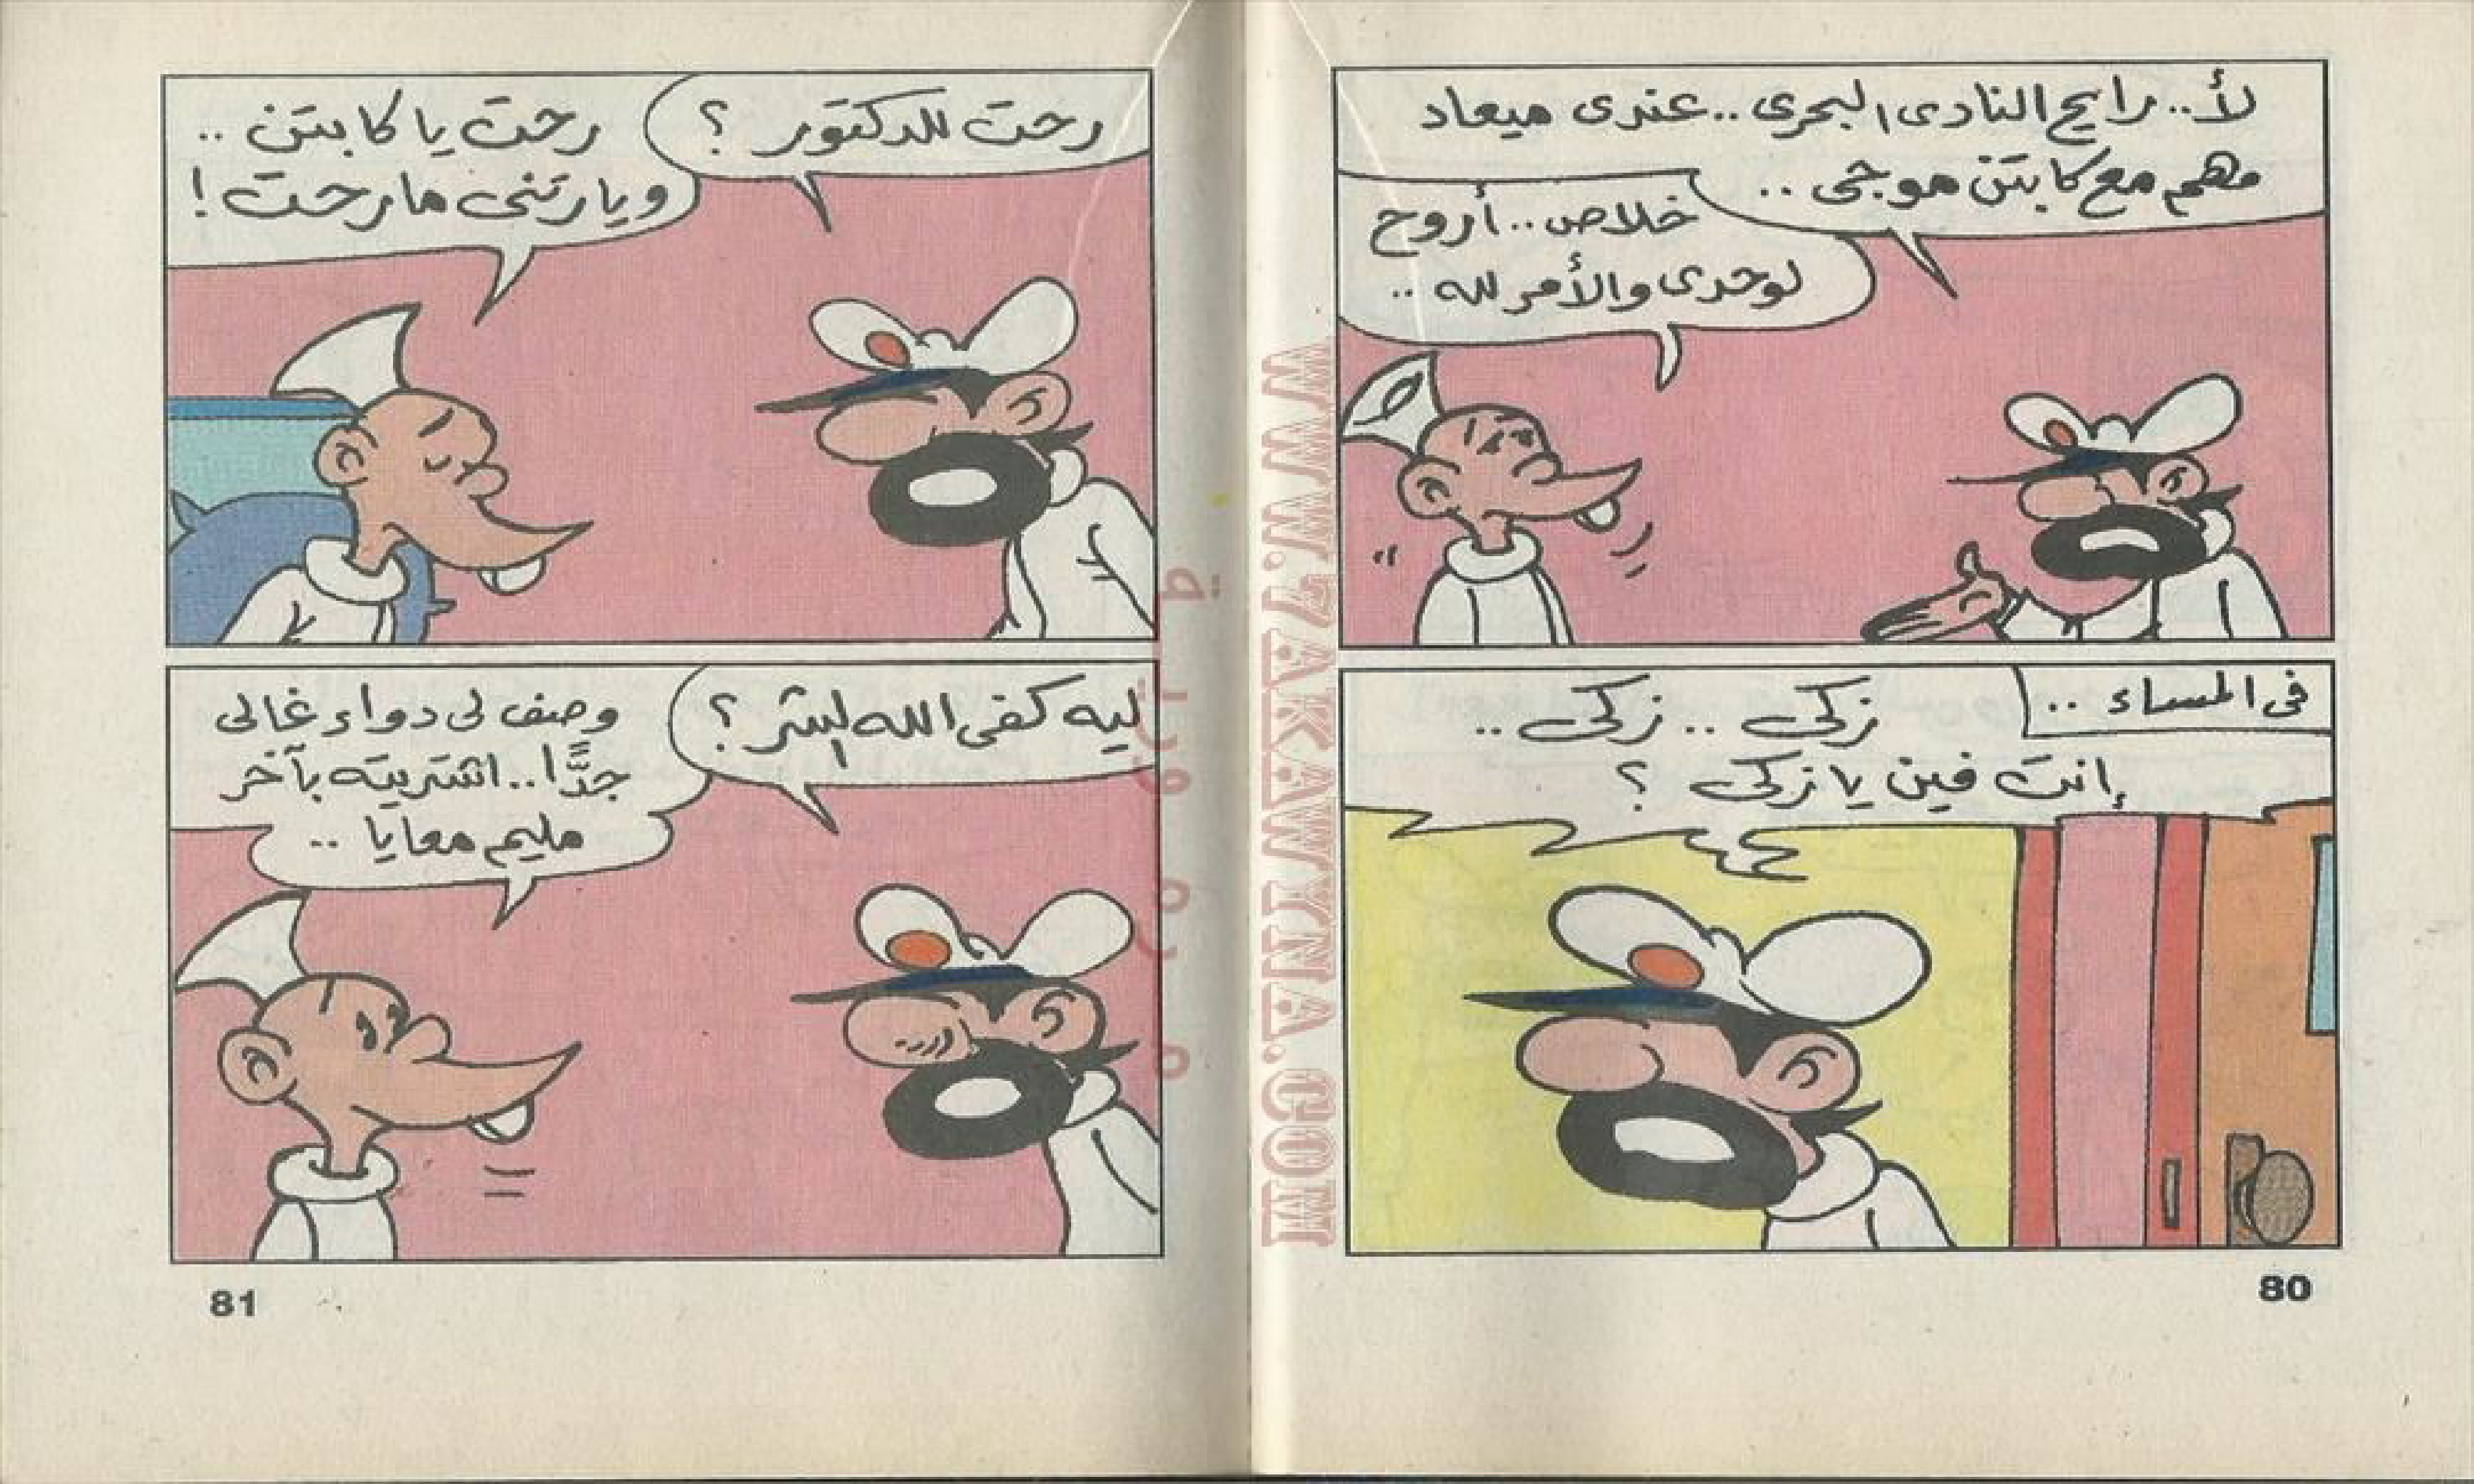 لأ.. رايح النادى البحرى.. عندى ميعاد
مهم مع كابتن موجى ..
خلاص.. أروح
لوحدى والأمر لله ..
فى المساء ..
زكى .. زكى ..
إنت فين يا زكى ؟
80
رحت للدكتور ؟
رحت يا كابتن ..
ويارتنى ما رحت !
ليه كفى الله الشر ؟
وصف لى دواء غالى
جدًّا.. اشتريته بآخر
مليم معايا ..
81
WWW.7AKAWYNA.COM